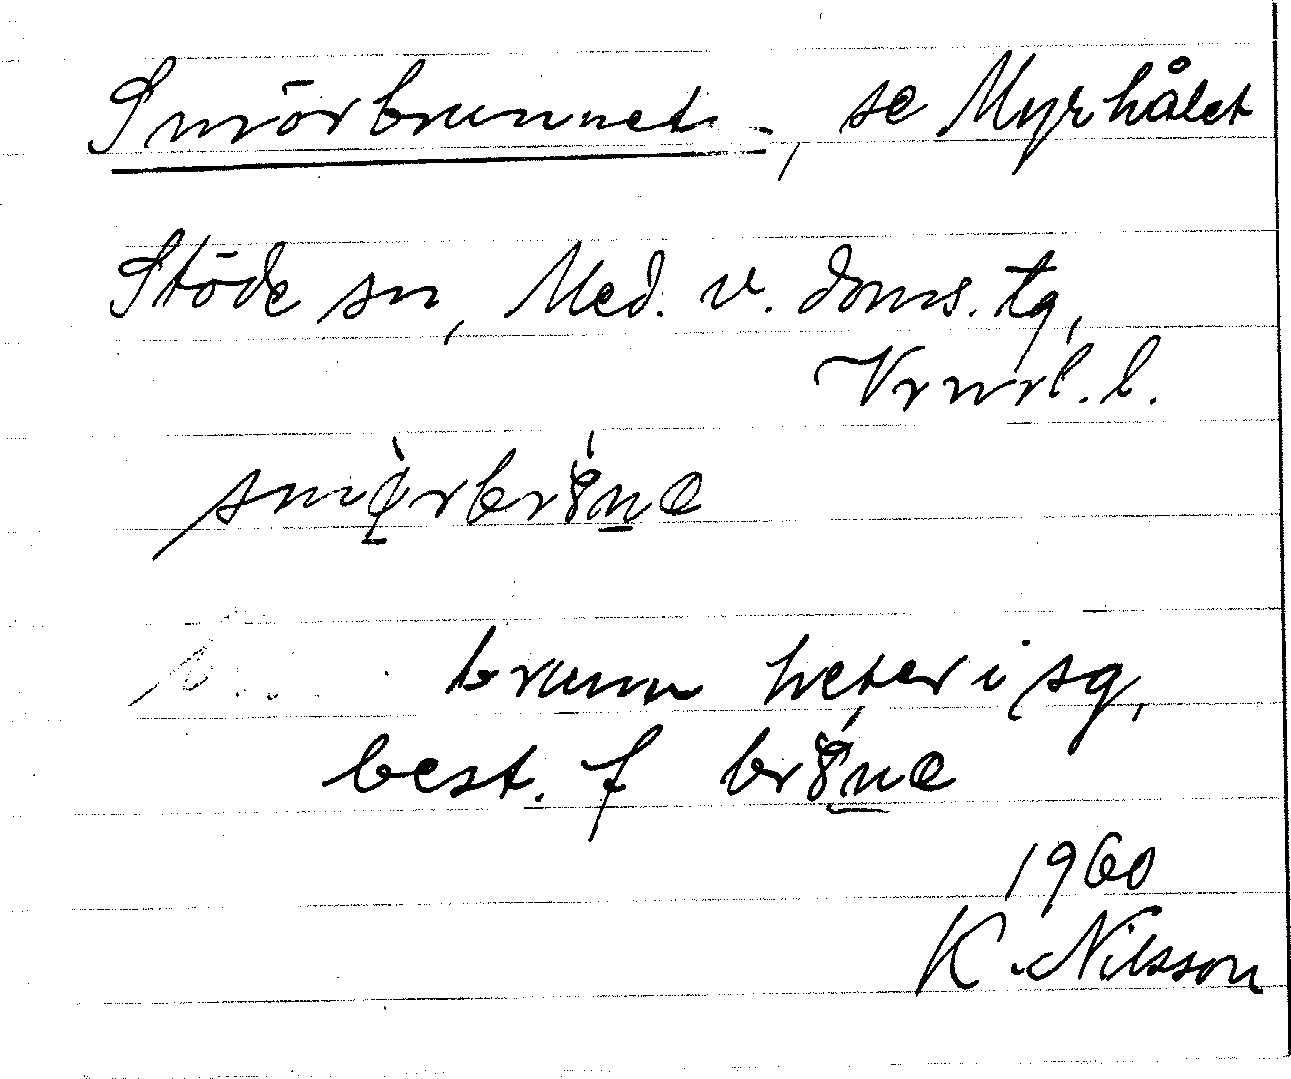 Smörbrunnet, se Myrhålet
Stöde sn, Med. v. doms. tg,
Vrnrl. l.
brunn heter i sg,
best. f
1960
K. Nilsson